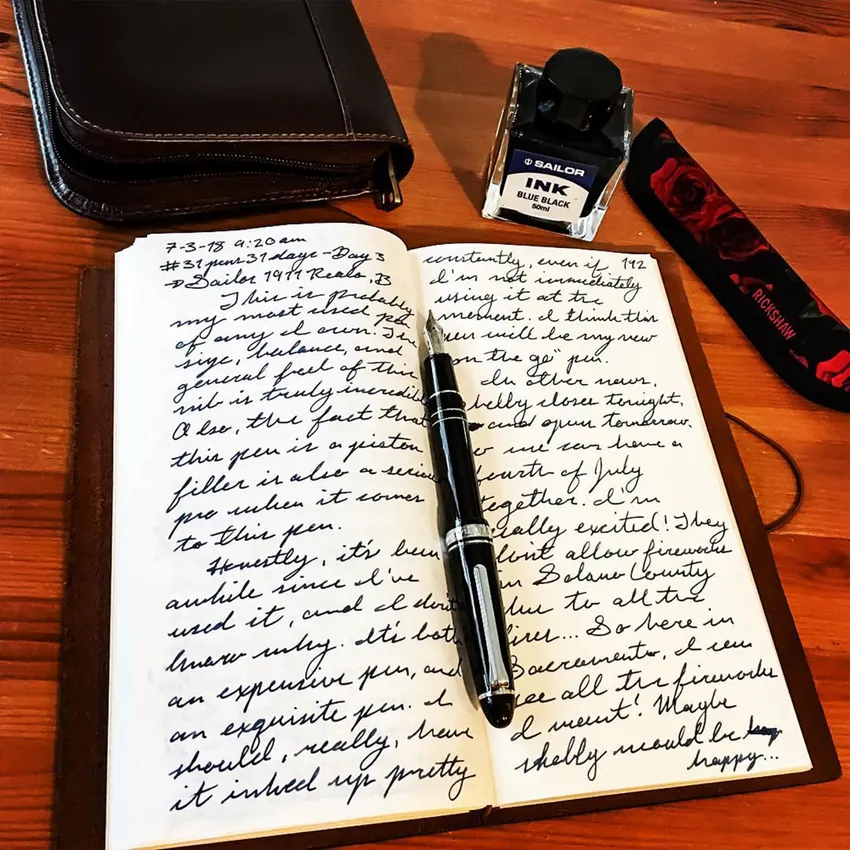 7-3-18 9:20am
#31pens31days-Day 3
→ Sailor 1911 Realo, B
This is probably
my most used pen
of any I own. The
size, balance, and
general feel of this
nib is truly incredible
Also, the fact that
this pen is a piston
filler is also a serious
pro when it comes
to this pen.
Honestly, it's been
awhile since I've
used it, and I don't
know why. It's both
an expensive pen, and
an exquisite pen. I
should, really, have
it inked up pretty
192
constantly, even if
I'm not immediately
using it at the
moment. I think this
pen will be my new
"on the go" pen.
In other news,
Shelly closes tonight,
and opens tomorrow.
So we can have a
fourth of July
together. I'm
really excited! They
don't allow fireworks
in Solano County
due to all the
fires... So here in
Sacramento, I can
see all the fireworks
I want! Maybe
shelly would be
happy...
SAILOR
INK
BLUE BLACK
50ml
RICKSHAW